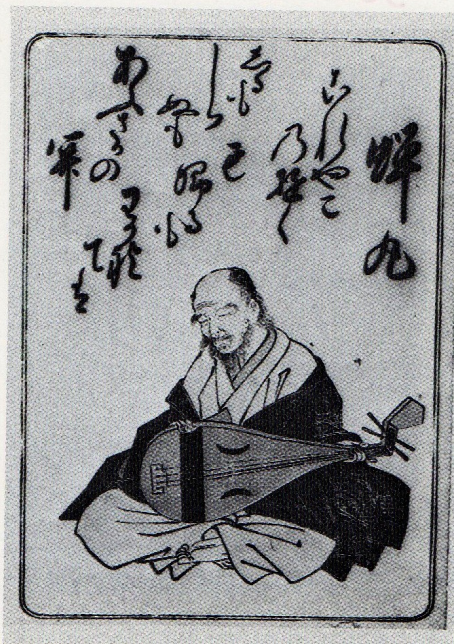 蝉丸
これやこ
乃行く
も
帰るも
わかれ
て者
志るも
しら
ぬも
あふさかの
関